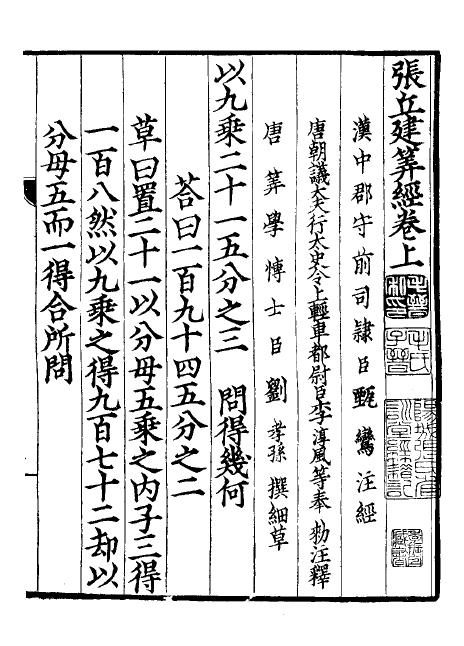 張丘建筭經卷上
漢中郡守前司隸臣甄鸞注經
唐朝議大夫行太史令上輕車都尉臣李淳風等奉勑注釋
唐筭學博士臣劉孝孫撰細草
以九乘二十一五分之三　問得幾何
荅曰一百九十四五分之二
草曰置二十一以分母五乘之内子三得
一百八然以九乘之得九百七十二却以
分母五而一得合所問